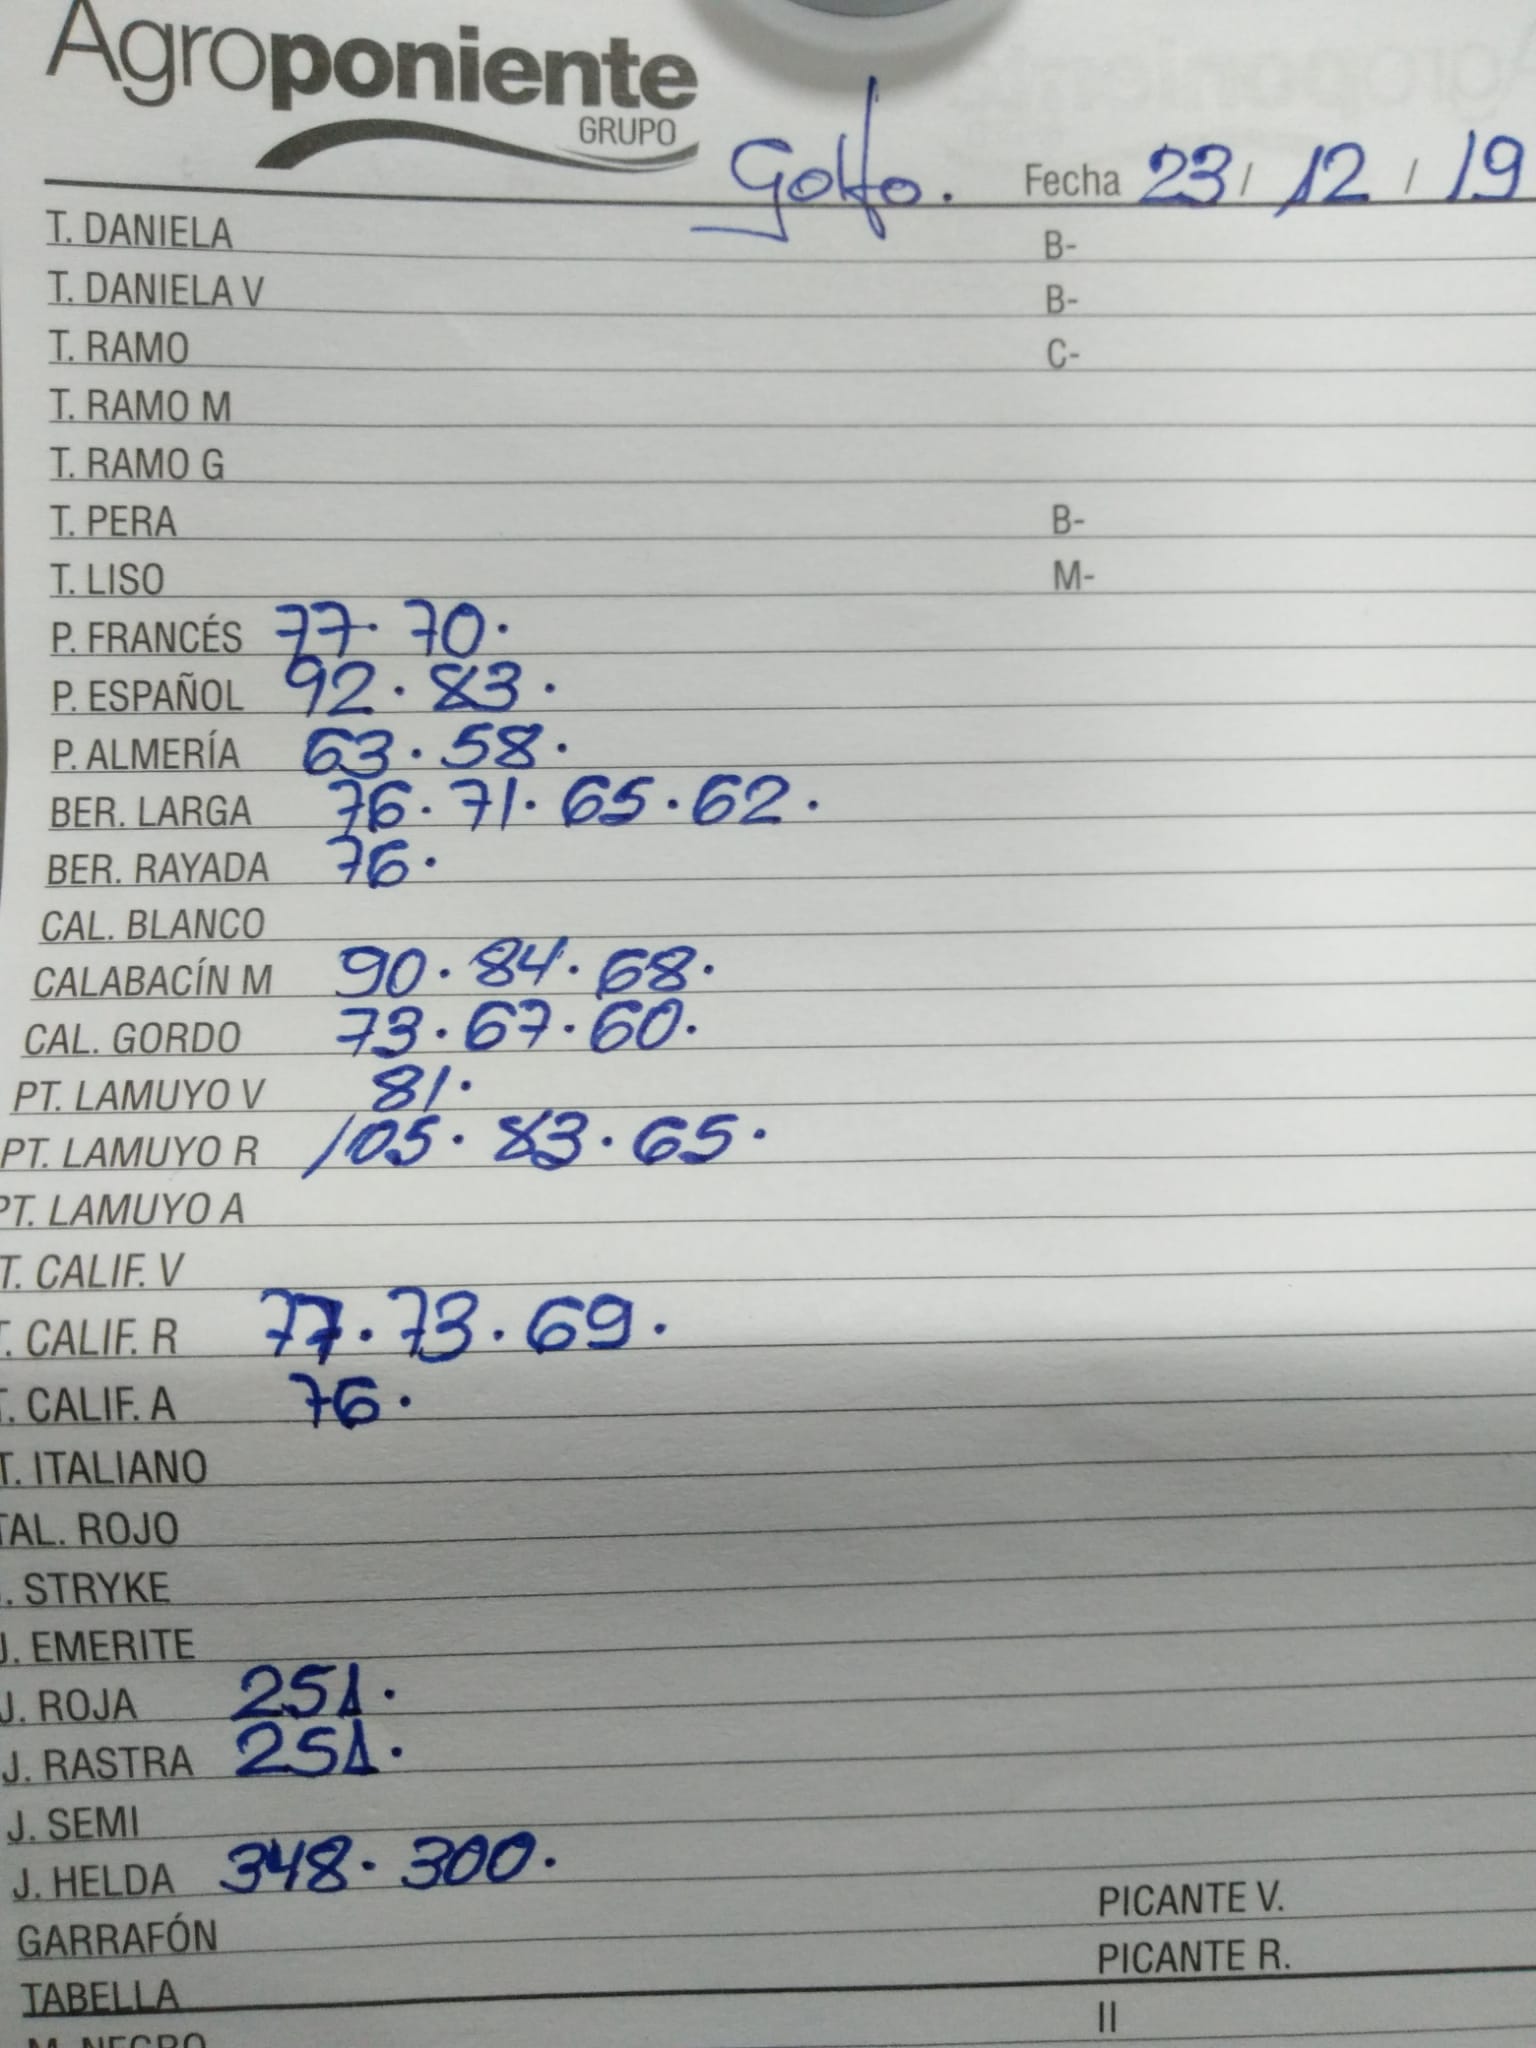 Agroponiente
GRUPO
Golfo. Fecha 23 / 12 / 19
T. DANIELA B-
T. DANIELA V B-
T. RAMO C-
T. RAMO M
T. RAMO G
T. PERA B-
T. LISO M-
P. FRANCÉS 77. 70.
P. ESPAÑOL 92. 83.
P. ALMERÍA 63. 58.
BER. LARGA 76. 71. 65. 62.
BER. RAYADA 76.
CAL. BLANCO
CALABACÍN M 90. 84. 68.
CAL. GORDO 73. 67. 60.
PT. LAMUYO V 81.
PT. LAMUYO R 105. 83. 65.
PT. LAMUYO A
T. CALIF. V
T. CALIF. R 77. 73. 69.
T. CALIF. A 76.
T. ITALIANO
TAL. ROJO
. STRYKE
J. EMERITE
J. ROJA 251.
J. RASTRA 251.
J. SEMI
J. HELDA 348. 300.
GARRAFÓN PICANTE V.
TABELLA PICANTE R.
M. NEGRO II